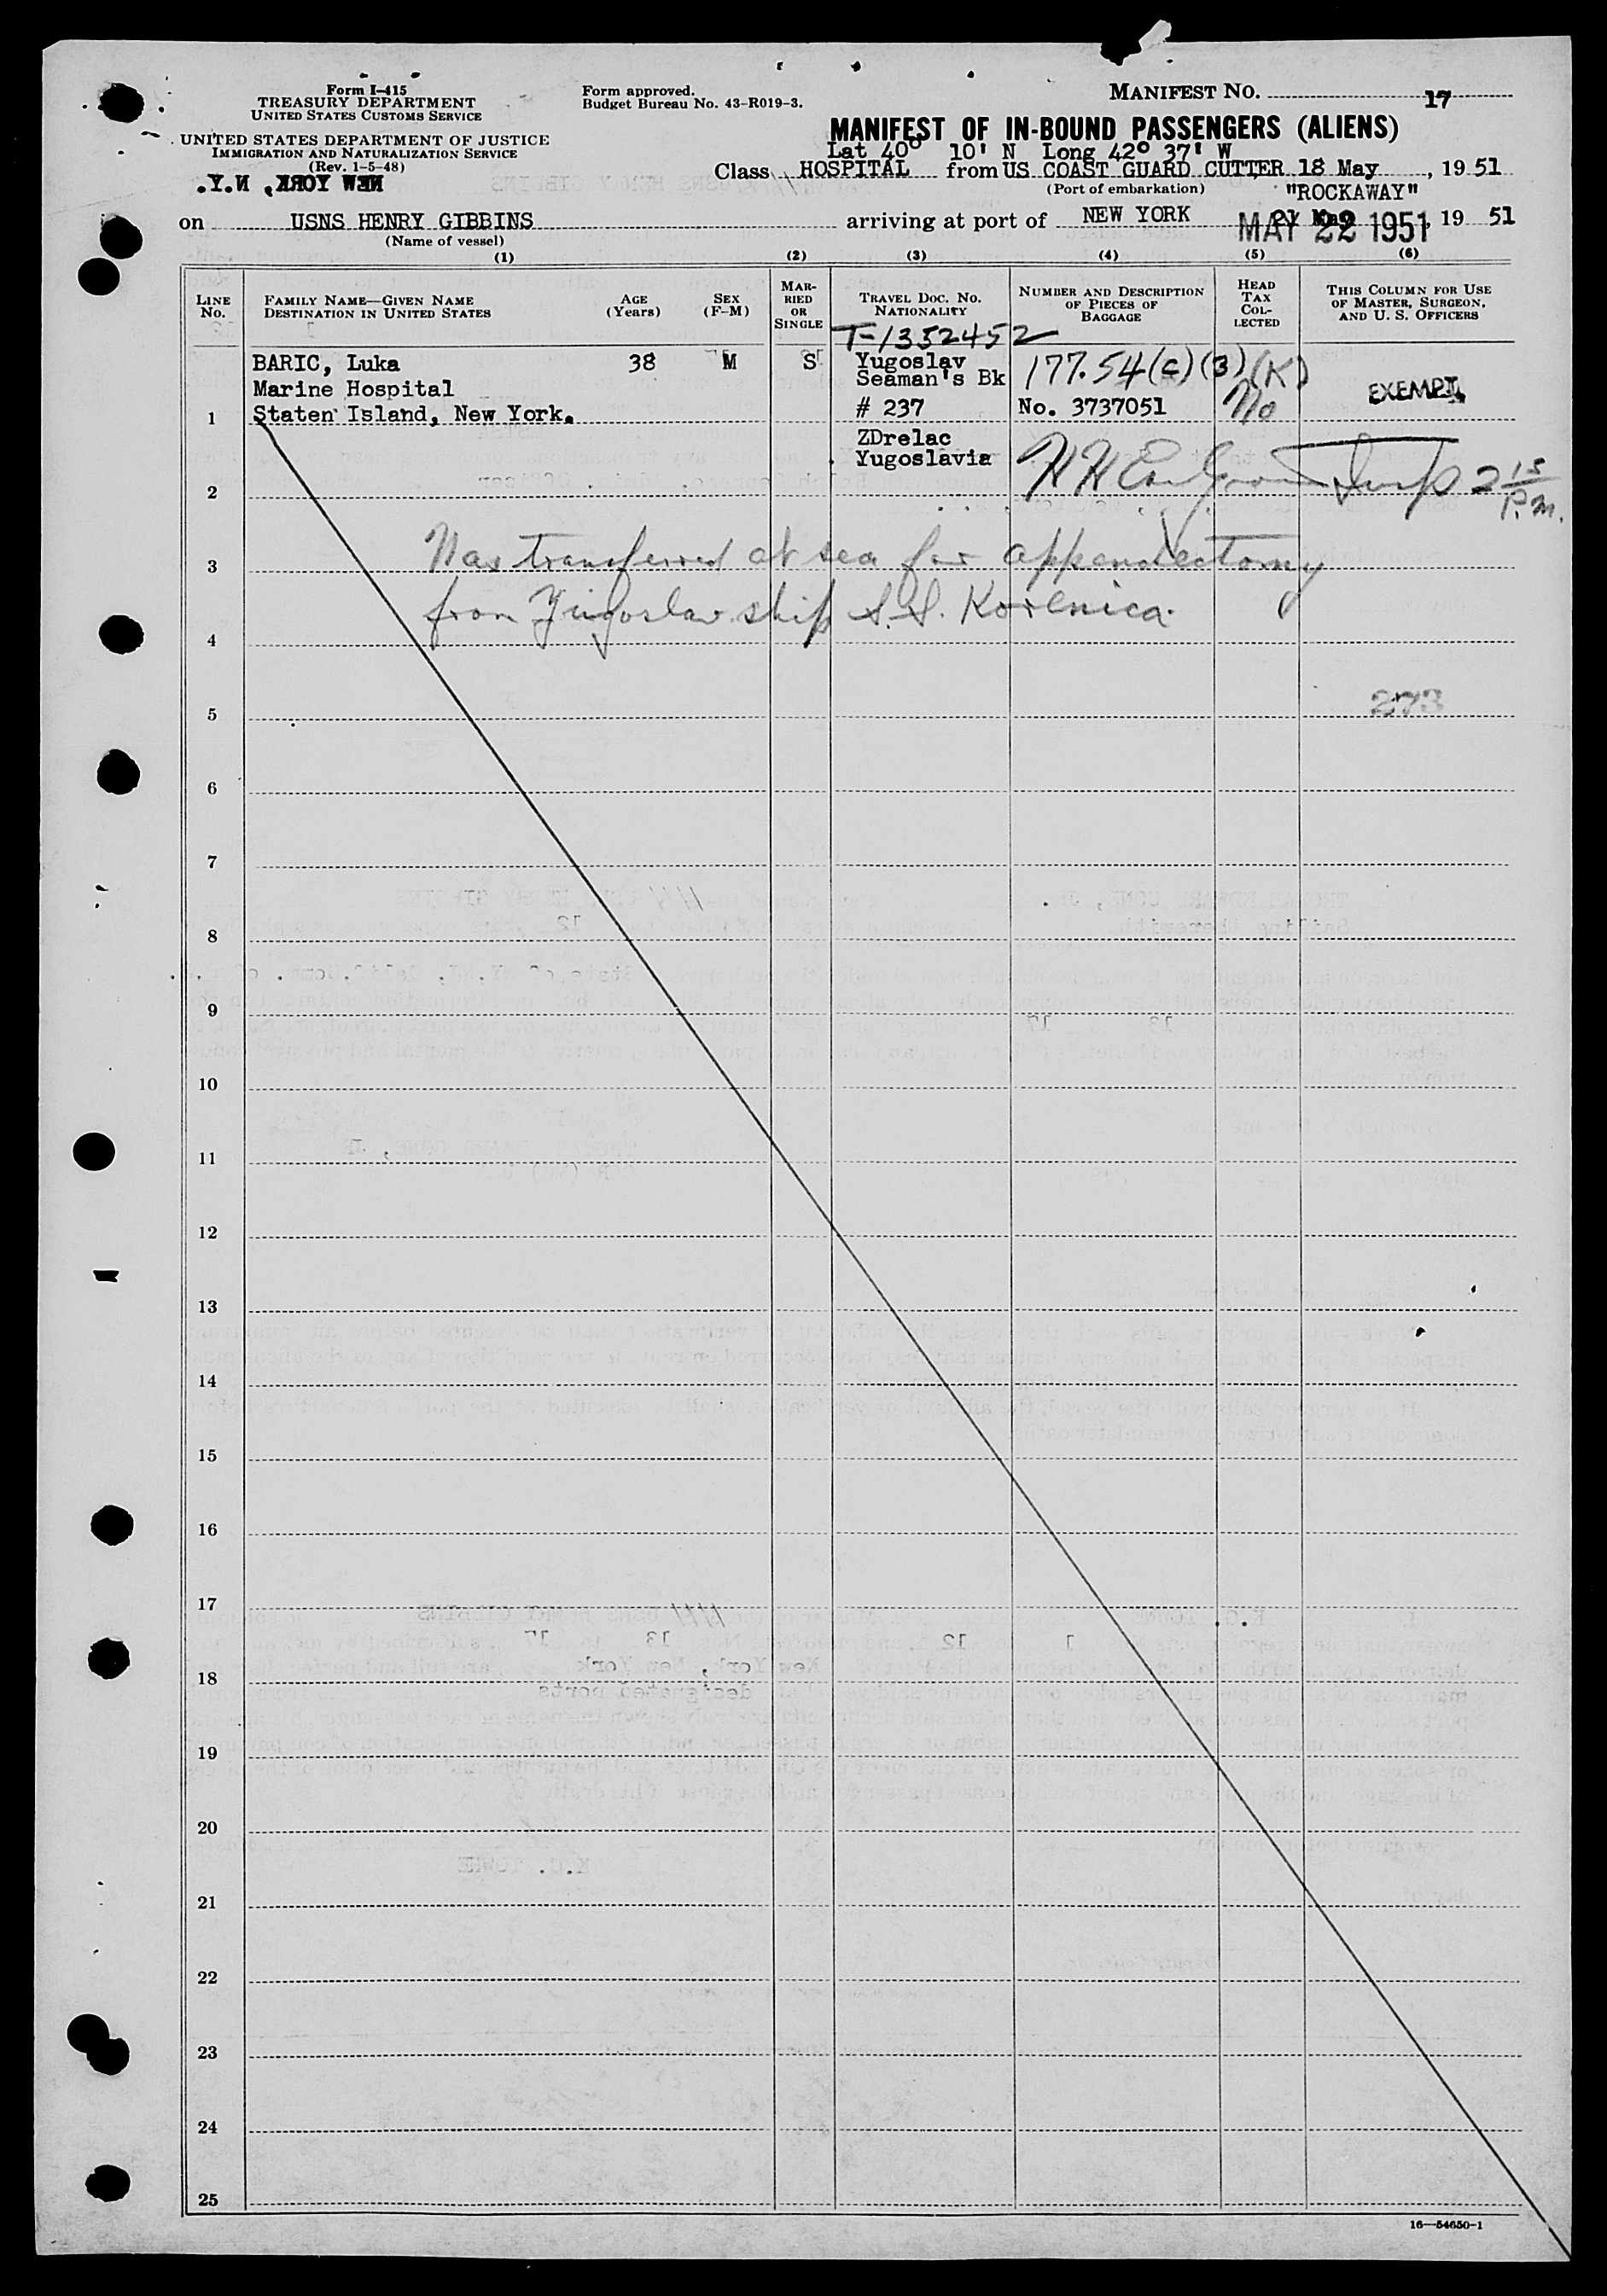 Form I-415
TREASURY DEPARTMENT
UNITED STATES CUSTOMS SERVICE
UNITED STATES DEPARTMENT OF JUSTICE
IMMIGRATION AND NATURALIZATION SERVICE
(Rev. 1-5-48)
NEW YORK, N.Y.
Form approved.
Budget Bureau No. 43-R019-3.
MANIFEST NO. 17
MANIFEST OF IN-BOUND PASSENGERS (ALIENS)
Lat 40° 10' N Long 42° 37' W
Class HOSPITAL from US COAST GUARD CUTTER 18 May, 19 51
(Port of embarkation) "ROCKAWAY"
on USNS HENRY GIBBINS arriving at port of NEW YORK MAY 22 1951, 19 51
(Name of vessel)
(1) (2) (3) (4) (5) (6)
LINE No.
FAMILY NAME—GIVEN NAME
DESTINATION IN UNITED STATES
AGE (Years)
SEX (F-M)
MARRIED OR SINGLE
TRAVEL DOC. NO.
NATIONALITY
NUMBER AND DESCRIPTION OF PIECES OF BAGGAGE
HEAD TAX COLLECTED
THIS COLUMN FOR USE OF MASTER, SURGEON, AND U. S. OFFICERS
T-1352452
BARIC, Luka 38 M S Yugoslav 177.54(c)(3)(K)
Marine Hospital Seaman's Bk EXEMPT
1 Staten Island, New York. # 237 No. 3737051 No
ZDrelac
Yugoslavia
2 Insp 2 15 P.m.
3 Was transferred at sea for appendectomy
4 from Yugoslav ship S.S. Korenica.
5 273
6
7
8
9
10
11
12
13
14
15
16
17
18
19
20
21
22
23
24
25
16—54650-1